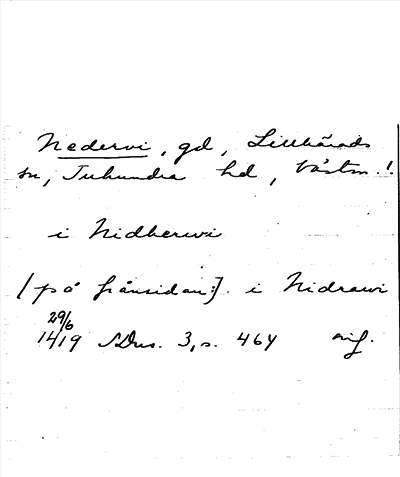 Nedervi, gd, Lillhärads
sn, Tuhundra hd, Västm.l.
i Nidherwi
[på frånsidan:] i Nidrawi
29/6
1419 SDns. 3, s. 464 orig.